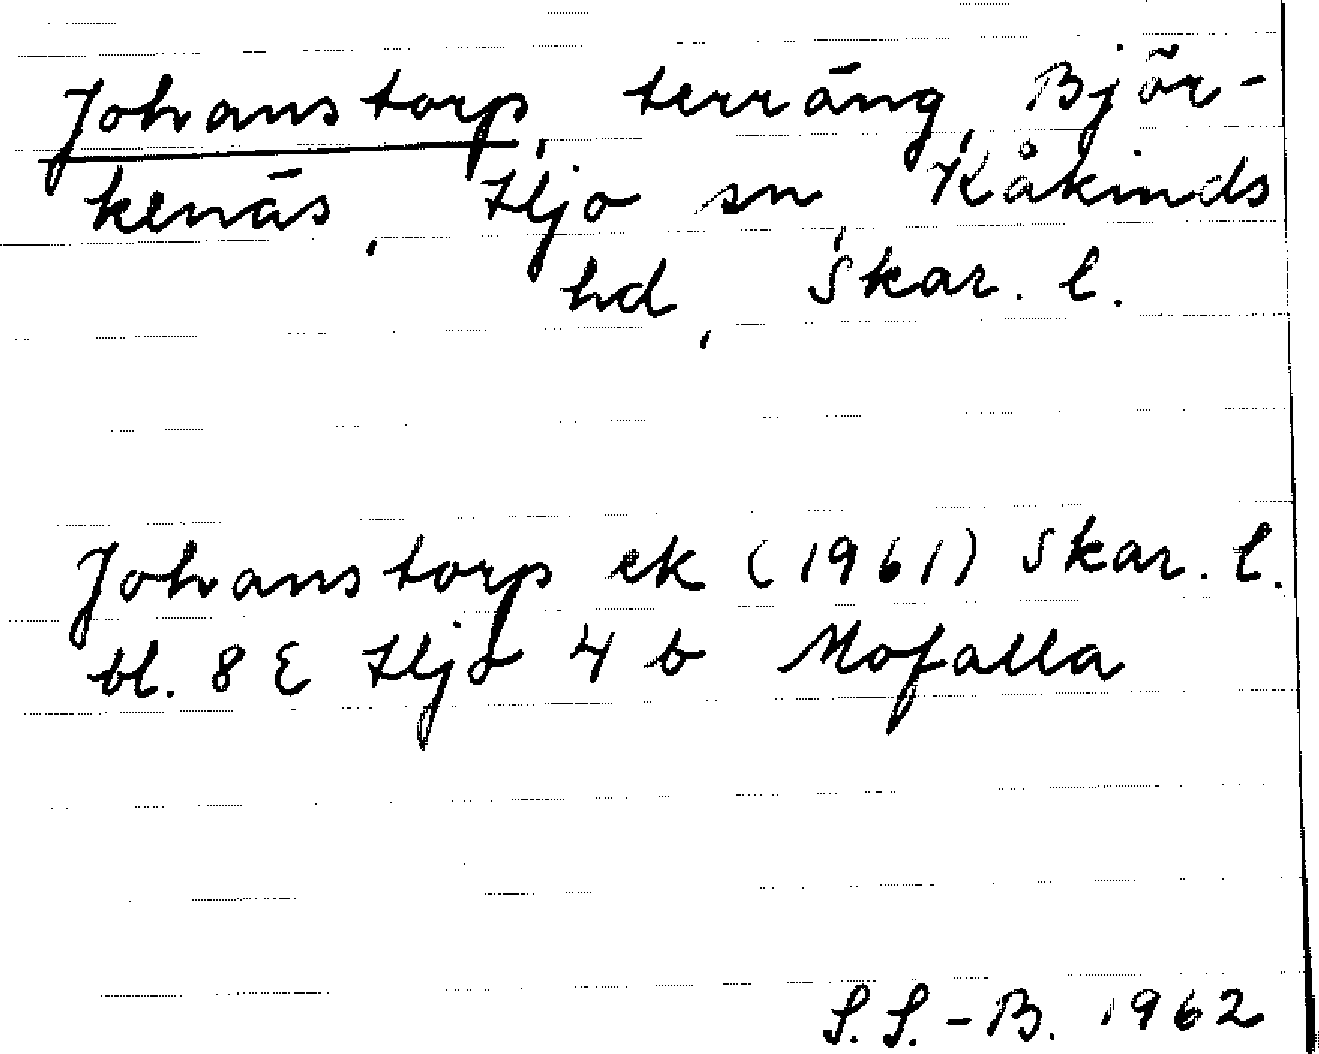 Johanstorp, terräng, Björ-
kenäs, Hjo sn, Kåkinds
hd, Skar. l.
Johanstorp ek (1961) Skar. l.
bl. 8 E Hjo 4 b Mofalla
S.S.-B. 1962